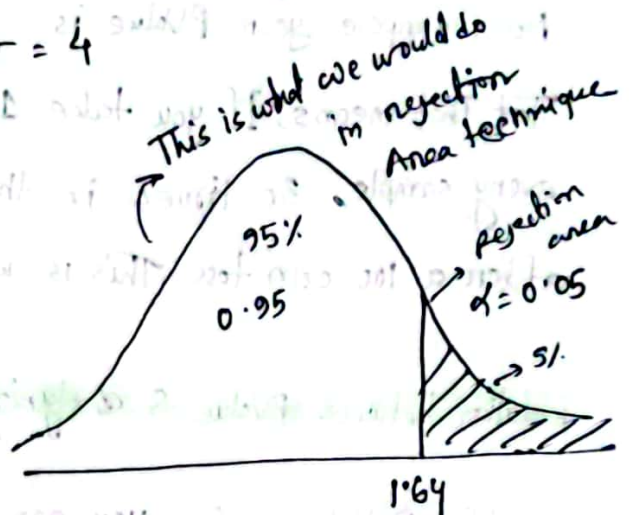 = 4
This is what we would do
in rejection
Area technique
95%
0.95
rejection
area
α = 0.05
5%
1.64